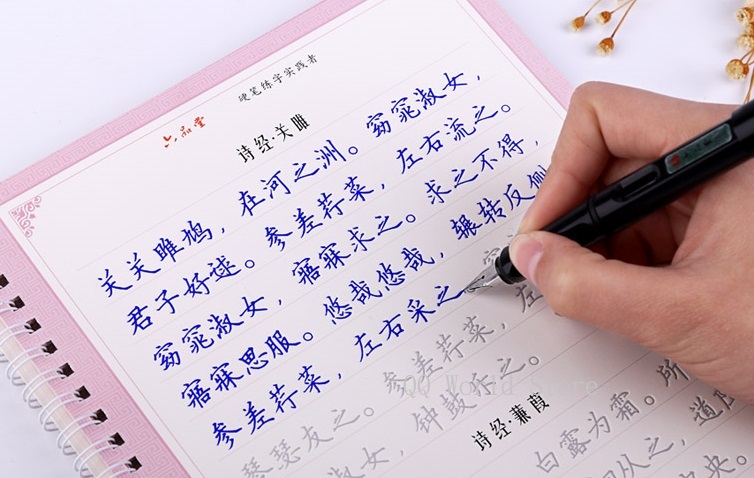 六品堂
硬笔练字实践者
诗经·关雎
关关雎鸠，在河之洲。窈窕淑女，
君子好逑。参差荇菜，左右流之。
窈窕淑女，寤寐求之。求之不得，
寤寐思服。悠哉悠哉，辗转反侧
参差荇菜，左右采之
琴瑟友之。参差荇菜，左
淑女，钟鼓乐之。
诗经·蒹葭
白露为霜。所
洄从之，道阻
中央。
QQ World Store